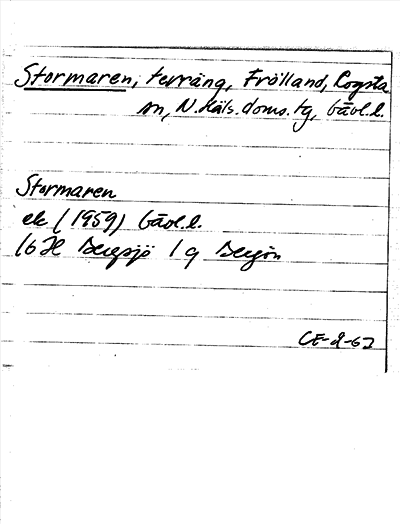 Stormaren, terräng, Frölland, Rogsta
sn, N. Häls. doms. tg, Gävl. l.
Stormaren
ek (1959) Gävl. l.
16H Bergsjö 1g Bergön
CE-2-62